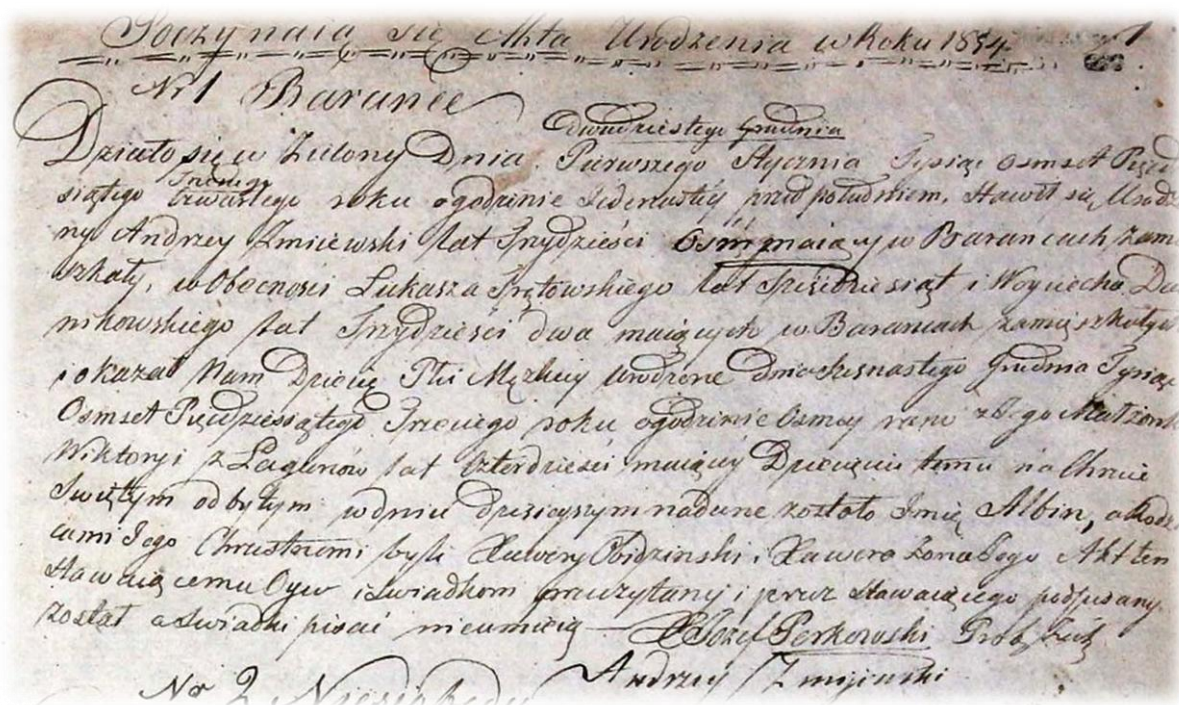 Poczynaią się Akta Urodzenia w Roku 1854 1
Nr 1 Barance
dwudziestego Grudnia
Działo się w Zielony Dnia Pierwszego Stycznia Tysiąc Osmset Pięćd
Trzeciego
siątego Czwartego roku ogodzinie Jedenastey przed południem, Stawił się Urodz
ny Andrzey Zmiiewski lat Trzydzieści Osm maiący w Barancach zami
szkały, w Obecności Łukasza lat Sześćdziesiąt i Woyciecha Da
nikowskiego lat Trzydzieści dwa maiących w Barancach zamięszkałych
i okazał Nam Dziecię Płci Męzkiey urodzone dnia Szesnastego Grudnia Tysiąc
Osmset Pięćdziesiątego Trzeciego roku ogodzinie Osmey rano z Jego Małżonki
Wiktoryi z Łagunów lat Czterdzieści maiący Dziecięciu temu na Chrzcie
Swiętym odbytym w dniu dzisieyszym nadane zostało Imię Albin, a Rodzi
cami Jego Chrzestnemi byli Xawery Obidzinski i Xawera Zona Jego Akt ten
stawaiącemu Oycu i Swiadkom przeczytany i przez stawaiącego podpisany
został a Swiadki pisać nieumieią X Jozef Perkowski Prob.
Andrzey Zmijewski
No 2